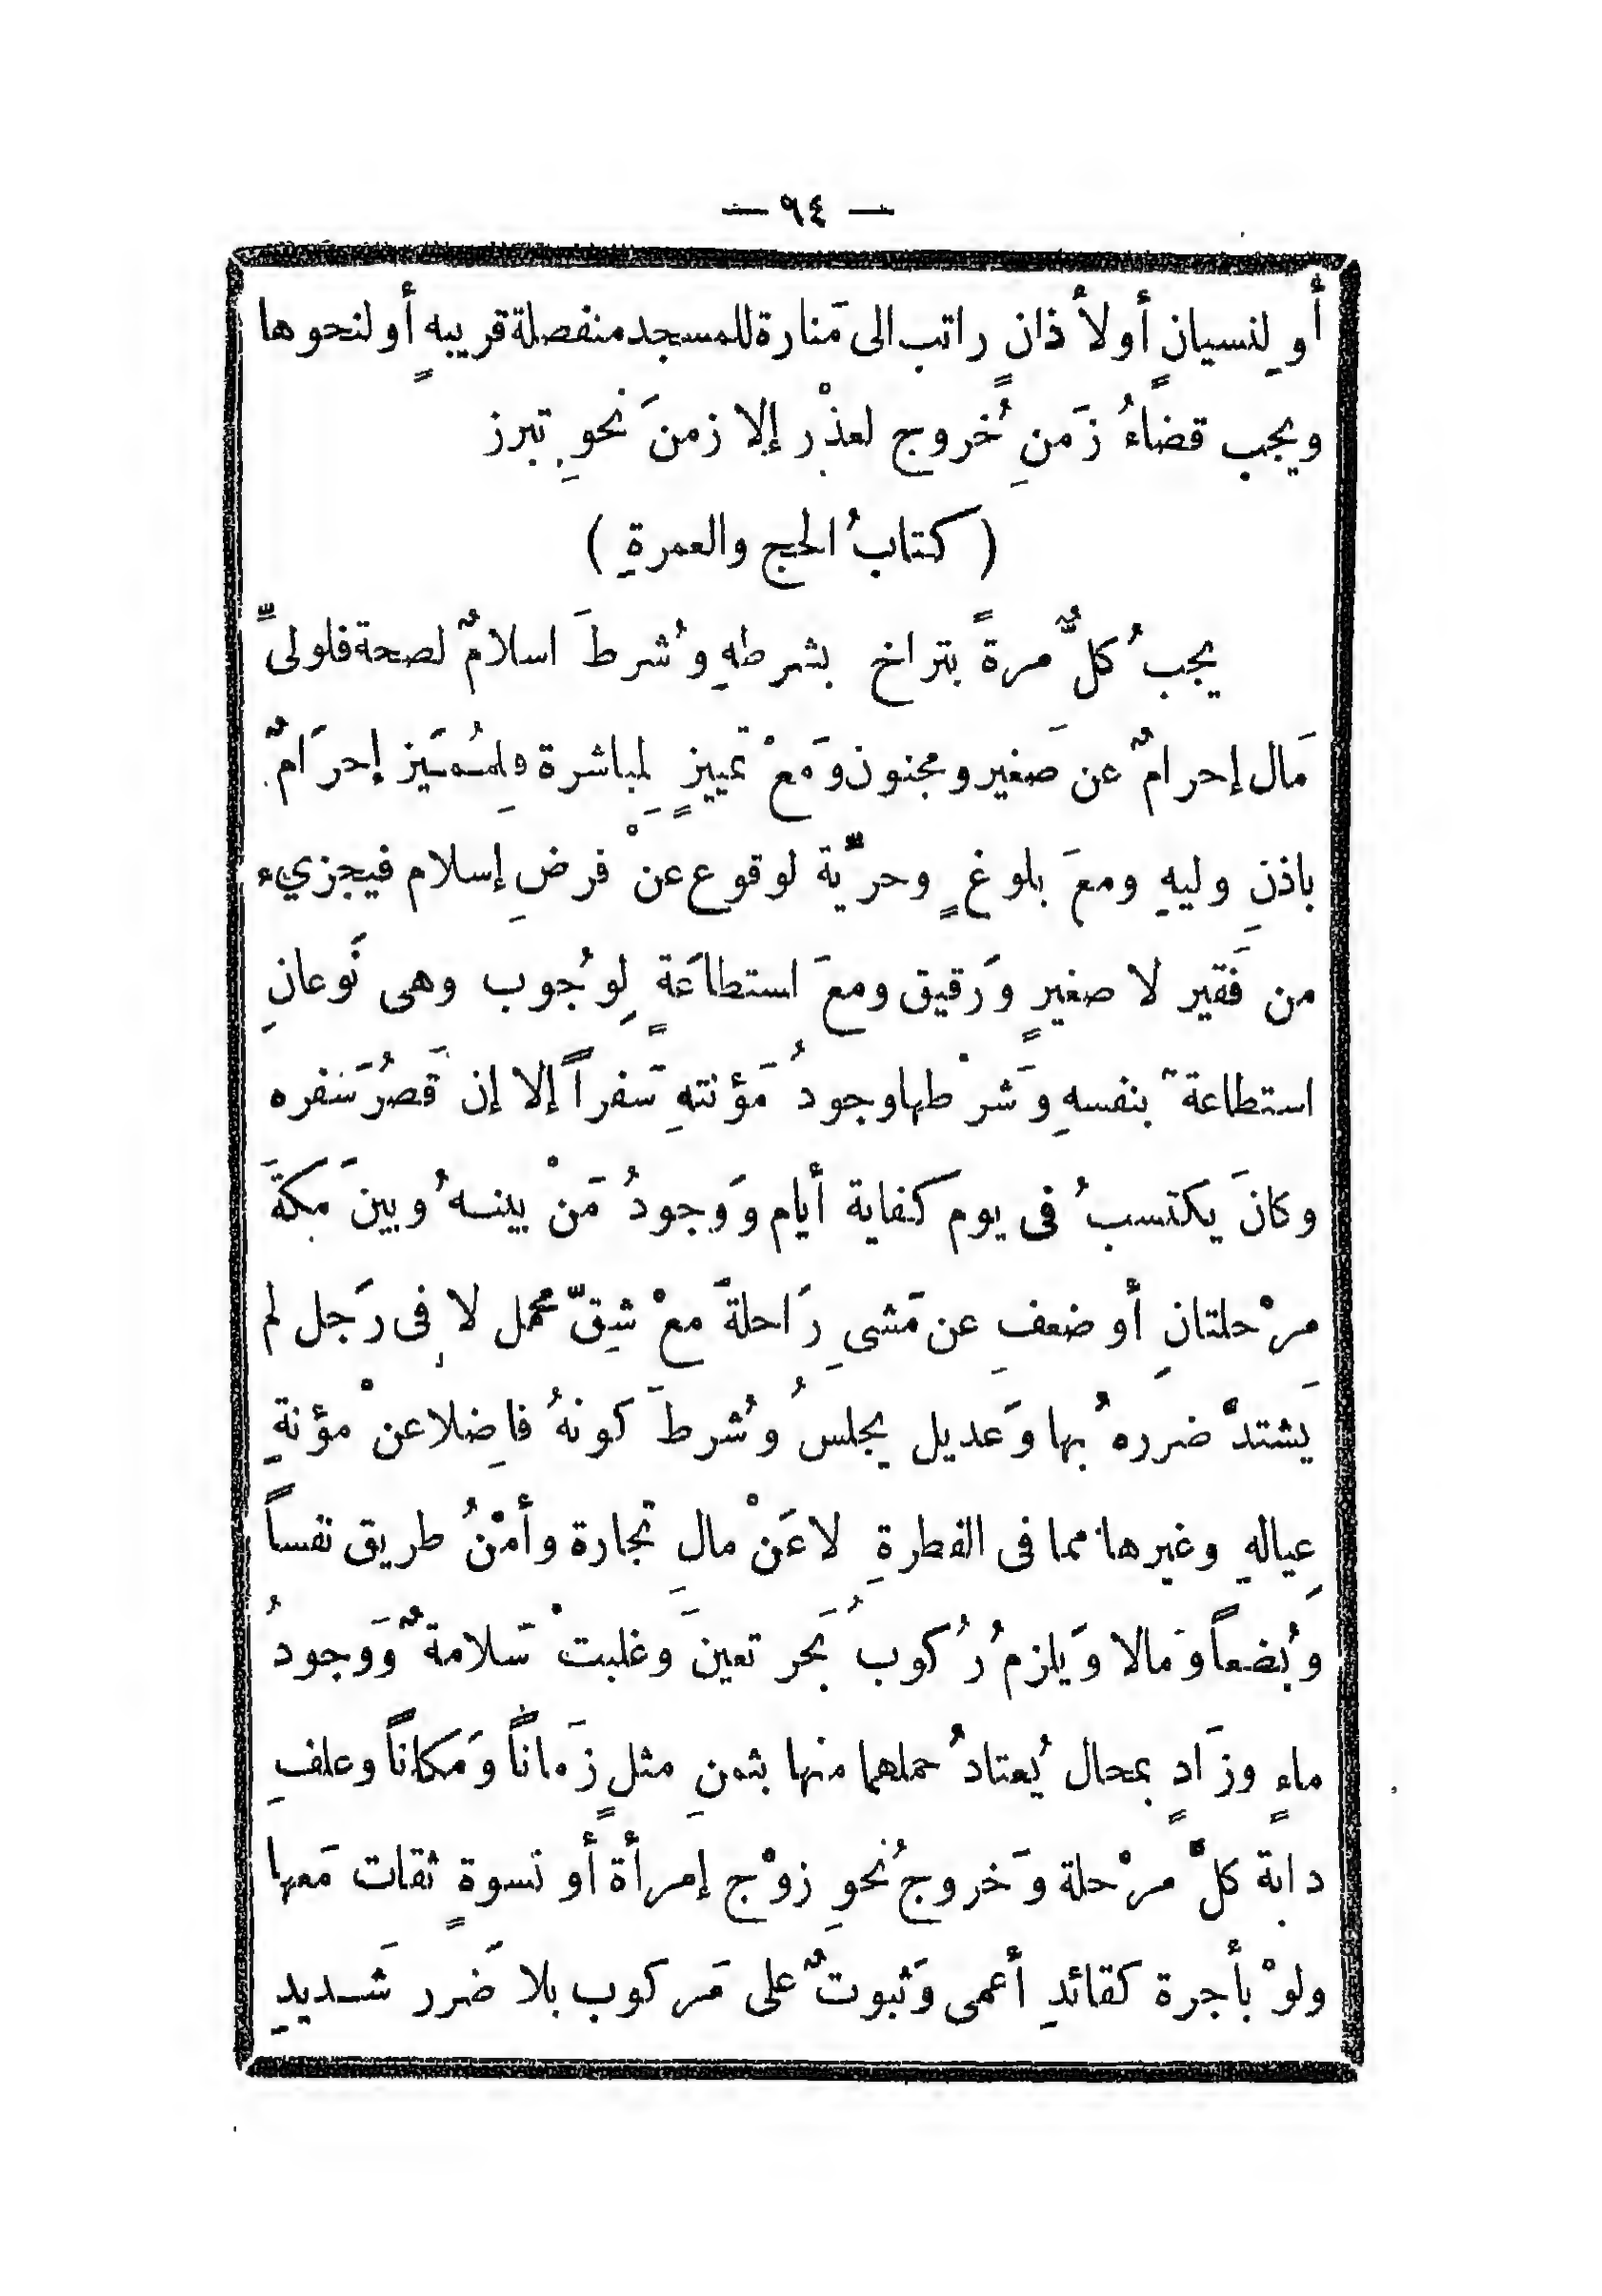 — ٩٤ —
أو لِنسيانٍ أو لأذانٍ راتبٍ الى مَنارة للمسجد منفصلة قريبهٍ أو لنحوها
ويجب قضَاءُ زَمنِ خُروج لعذْر إلا زمنَ نَحوِ تبرز
( كتابُ الحج والعمرةِ )
يجبُ كلٌّ مرةً بتراخ بشرطهِ وشُرطَ اسلامٌ لصحة فلولىِّ
مَال إحرامٌ عن صَغير ومجنون ومَعْ تمييزٍ لِمباشرة فلِمُمَيَز إحرَامٌ
باذنِ وليهِ ومعَ بلوغٍ وحرِّية لوقوع عنْ فرضِ إسلام فيجزيء
من فَقير لا صغيرٍ وَرقيق ومعَ استطاَعةٍ لِوُجوب وهى نَوعانِ
استطاعةً بنفسهِ وَشرْطها وجودُ مَؤنتهِ سَفراً إلا إن قَصُرَ سَفره
وكانَ يكتسبُ فى يوم كفاية أيام وَوَجودُ مَنْ بينهُ وبينَ مَكةَ
مرْحلتانِ أو ضعفِ عن مَشىِ رَاحلةً معْ شِقّ محمل لا فِى رَجل لم
يَشتدَّ ضررهُ بها وَعديل يجلسُ وشُرطَ كونهُ فاضِلا عنْ مؤنةِ
عِيالهِ وغيرها مما فى الفطرةِ لا عَنْ مالِ تجارة وأمْنُ طريق نفساً
وبُضعاً وَمالا وَيلزمُ رُكوبُ بَحر تعينَ وغلبتْ سَلامةٌ وَوَجودُ
ماءٍ وزَادٍ بمحال يُعتادُ حملهما منها بثمنِ مثلٍ زَماناً وَمَكاناً وعلفِ
دابة كلَّ مرْحلة وَخروجُ نحوِ زوْج إمرأة أو نسوةٍ ثقات مَعها
ولوْ بأجرة كقائدِ أعمى وَثبوتٌ على مَركوب بلا ضَرر شَديدِ